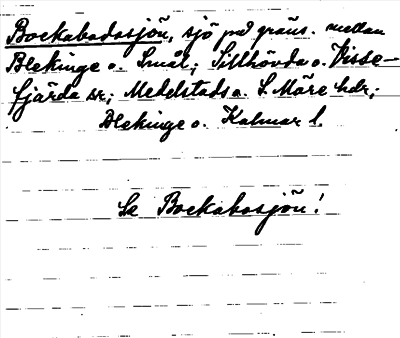 Bockabodasjön, sjö på gräns. mellan
Blekinge o. Smål; Sillhövda o. Visse-
fjärda sr; Medelstads o. S. Möre hdr;
Blekinge o. Kalmar l.
Se Bockabosjön!